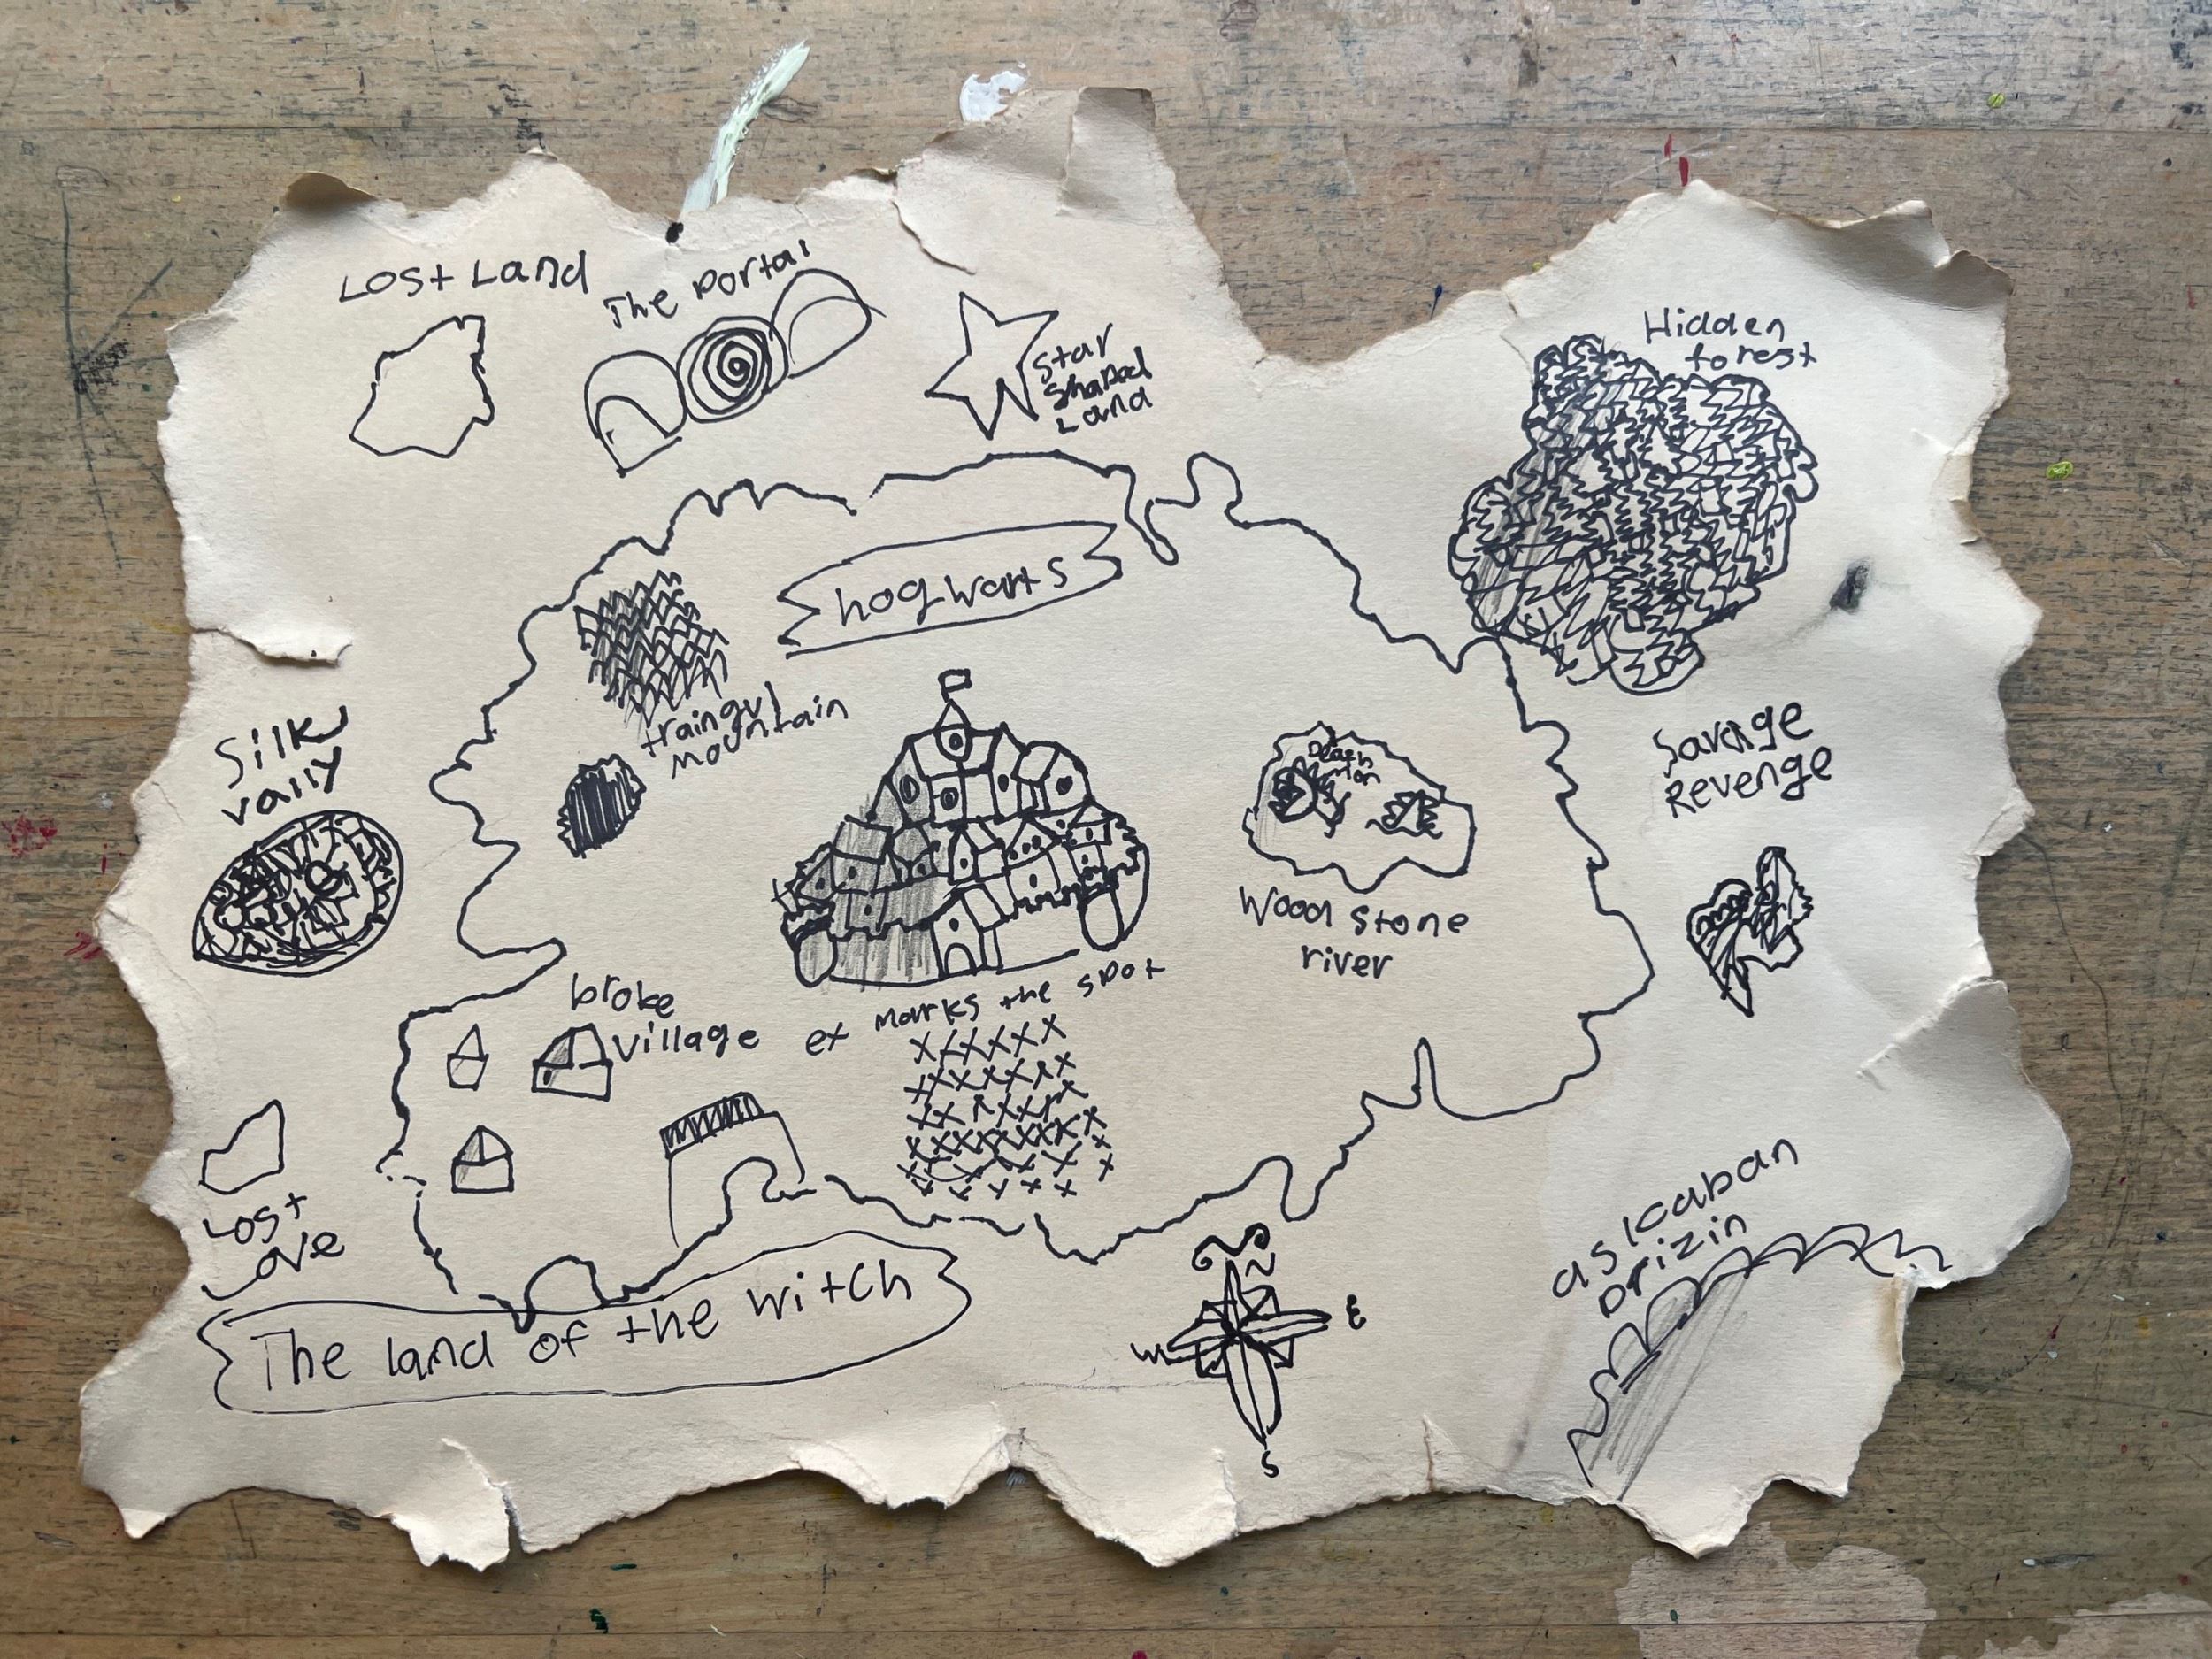 Lost Land
The portal
star
shaped
Land
Hidden
forest
hogwarts
traingul
mountain
Silky
vally
Savage
Revenge
Death
Wood stone
river
broke
village
ex marks the spot
Lost
Love
askaban
prizin
The land of the witch
N
E
W
S